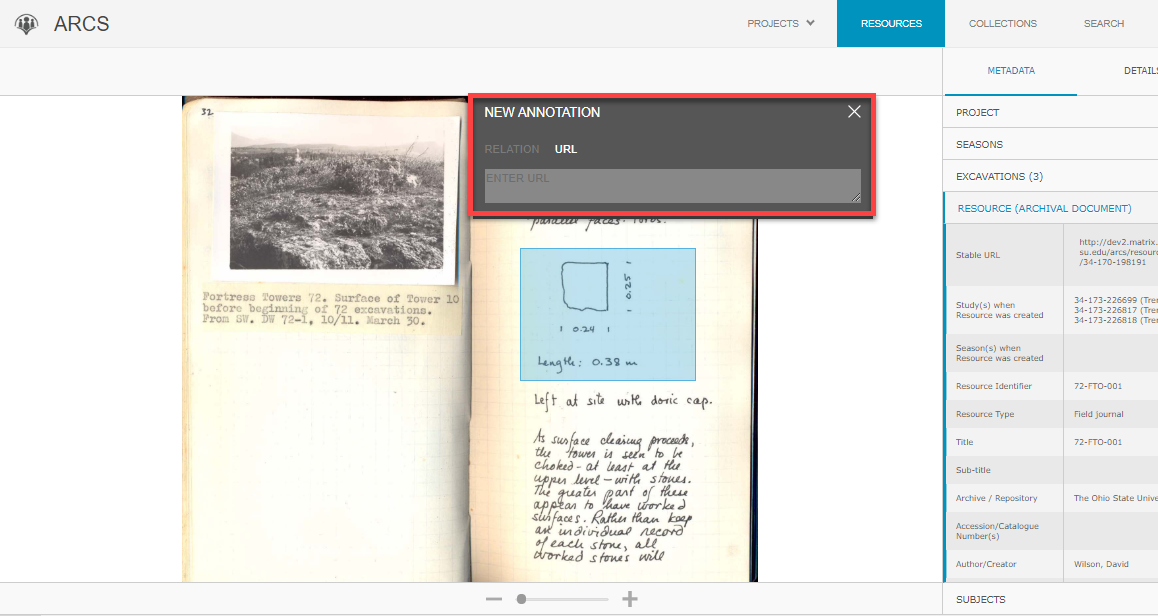 ARCS
PROJECTS
RESOURCES
COLLECTIONS
SEARCH
METADATA
DETAILS
32
Fortress Towers 72. Surface of Tower 10
before beginning of 72 excavations.
From SW. DW 72-1, 10/11. March 30.
NEW ANNOTATION
RELATION URL
ENTER URL
parallel faces.
0.25
0.24
Length: 0.38 m
Left at site with doric cap.
As surface clearing proceeds,
the tower is seen to be
choked - at least at the
upper level - with stones.
The greater part of these
appear to have worked
surfaces. Rather than keep
an individual record
of each stone, all
worked stones will
PROJECT
SEASONS
EXCAVATIONS (3)
RESOURCE (ARCHIVAL DOCUMENT)
Stable URL
http://dev2.matrix.
su.edu/arcs/resour
/34-170-198191
Study(s) when
Resource was created
34-173-226699 (Tre
34-173-226817 (Tre
34-173-226818 (Tre
Season(s) when
Resource was created
Resource Identifier
72-FTO-001
Resource Type
Field journal
Title
72-FTO-001
Sub-title
Archive / Repository
The Ohio State Unive
Accession/Catalogue
Number(s)
Author/Creator
Wilson, David
SUBJECTS